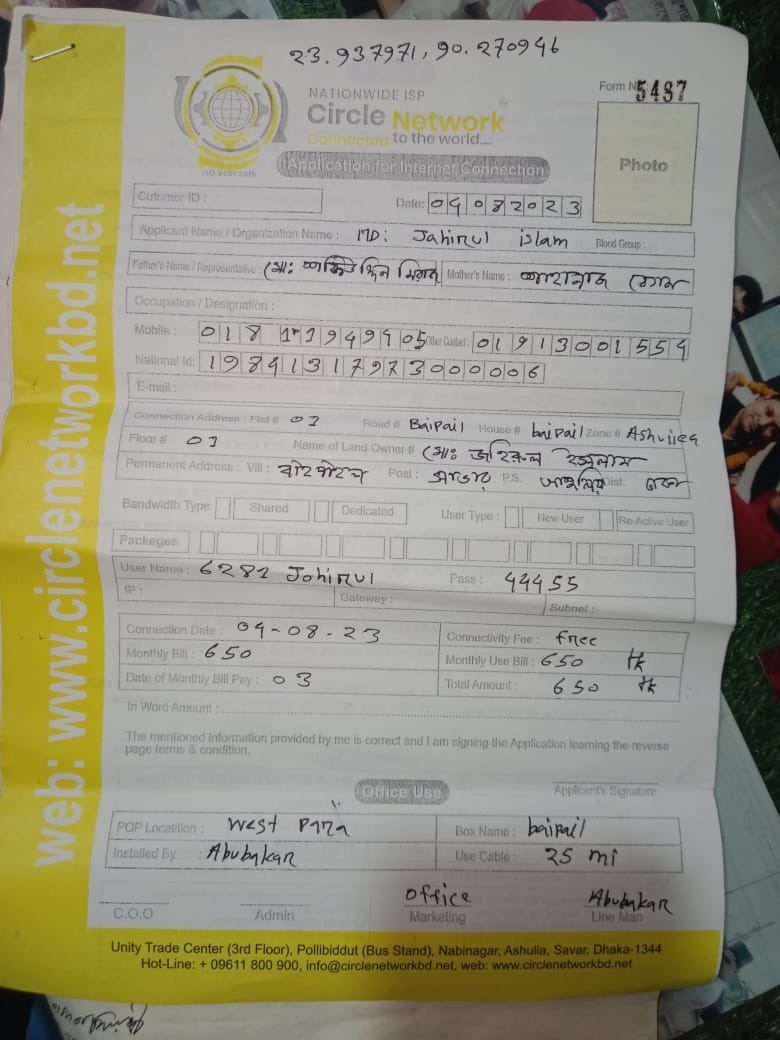 23.937971, 90.270946
NATIONWIDE ISP
Form N 5487
Circle Network
Connected to the world.....
ISO 9001:2015
Application for Internet Connection
Photo
Cutomer ID :
Date: 04 08 2023
Applicant Name / Organization Name : MD: Jahirul islam Blond Group :
Father's Name / Representative : মোঃ Mother's Name : শাহনাজ বেগম
Occupation / Designation :
Mobile : 018 19494905 Other Contact : 01913001554
National Id: 19841317973000006
E-mail :
Connection Address : Flat # 01 Road # Baipail House # baipail Zone # Ashuliea
Floor # 01 Name of Land Owner # মোঃ জহিরুল ইসলাম
Permanent Address : Vill : Post : সাভার P.S. আশুলিয়া Dist: ঢাকা
Bandwidth Type Shared Dedicated User Type : New User Re-Active User
Packeges
User Name : 6281 Johirul Pass : 44455
IP : Gateway : Subnet :
Connection Date : 04-08.23 Connectivity Fee : free
Monthly Bill : 650 Monthly Use Bill : 650 tk
Date of Monthly Bill Pay : 03 Total Amount : 650 tk
In Word Amount :
The mentioned information provided by me is correct and I am signing the Application learning the reverse
page terms & condition.
Office Use
Applicant's Signature
POP Locatition : West Para Box Name : baipail
Installed By : Abubakar Use Cable : 25 mi
Office Abubakar
C.O.O Admin Marketing Line Man
Unity Trade Center (3rd Floor), Pollibiddut (Bus Stand), Nabinagar, Ashulia, Savar, Dhaka-1344
Hot-Line: + 09611 800 900, info@circlenetworkbd.net, web: www.circlenetworkbd.net
web: www.circlenetworkbd.net